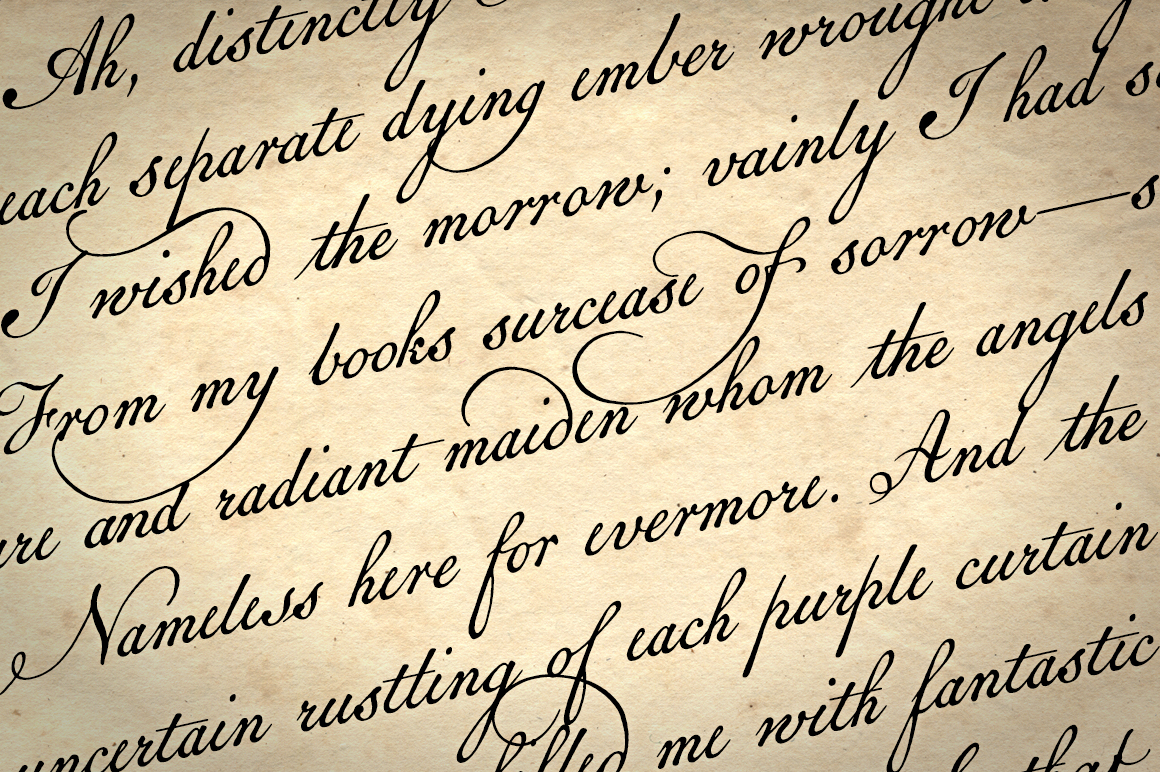 Ah, distinctly
each separate dying ember wrought
I wished the morrow; vainly I had
From my books surcease of sorrow—s
and radiant maiden whom the angels
Nameless here for evermore. And the
uncertain rustting of each purple curtain
me with fantastic
that